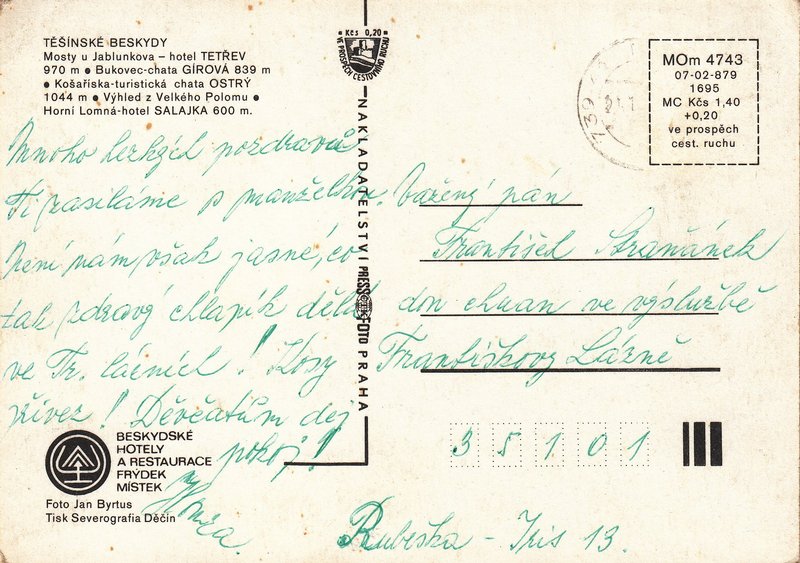 TĚŠÍNSKÉ BESKYDY
Mosty u Jablunkova – hotel TETŘEV
970 m ● Bukovec-chata GÍROVÁ 839 m
● Košařiska-turistická chata OSTRÝ
1044 m ● Výhled z Velkého Polomu ●
Horní Lomná-hotel SALAJKA 600 m.
Mnoho hezkých pozdravů
Ti zasíláme s manželkou.
Není nám však jasné, co
tak zdravý chlapík dělá
ve Fr. lázních! Kósy
křivez! Děvčatům dej
pokoj!
Honza.
BESKYDSKÉ
HOTELY
A RESTAURACE
FRÝDEK
MÍSTEK
Foto Jan Byrtus
Tisk Severografia Děčín
Kčs 0,20
VE PROSPĚCH CESTOVNÍHO RUCHU
NAKLADATELSTVÍ PRESSFOTO PRAHA
739
MOm 4743
07-02-879
1695
MC Kčs 1,40
+0,20
ve prospěch
cest. ruchu
Vážený pán
František
don chuan ve výslužbě
Františkovy Lázně
35101
Rubeška - Iris 13.